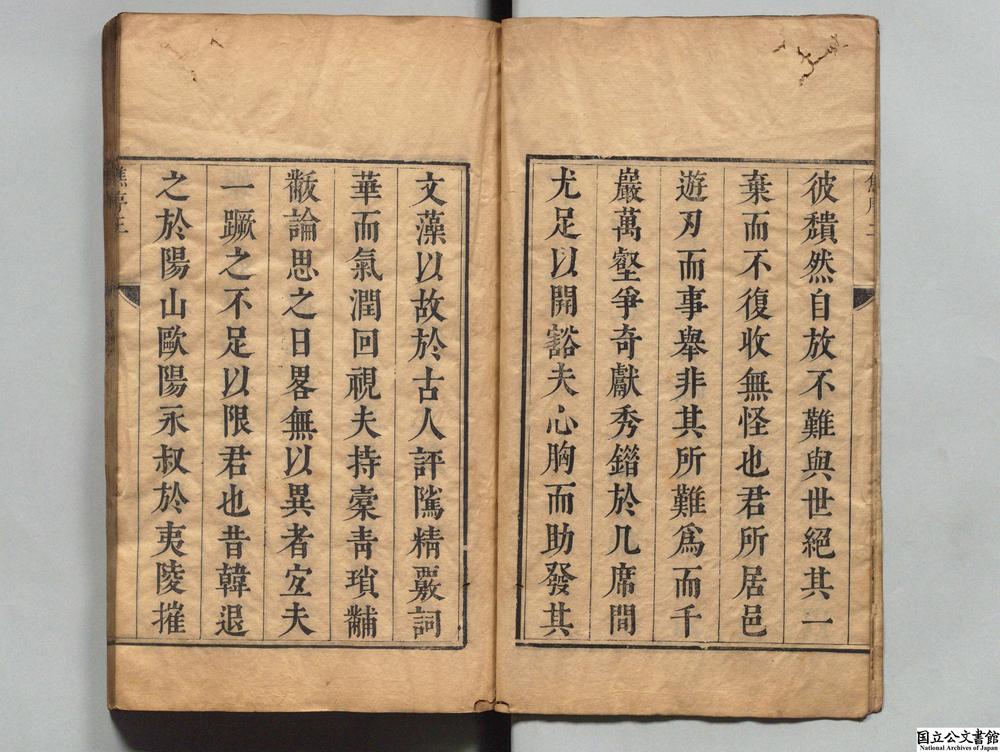 彼穨然自放不難與世絕其一
棄而不復收無怪也君所居邑
遊刃而事舉非其所難爲而千
巖萬壑爭奇獻秀錯於几席間
尤足以開豁夫心胸而助發其
文藻以故於古人評隲精覈詞
華而氣潤回視夫持槖靑瑣黼
黻論思之日畧無以異者宐夫
一蹶之不足以限君也昔韓退
之於陽山歐陽永叔於夷陵摧
国立公文書館
National Archives of Japan